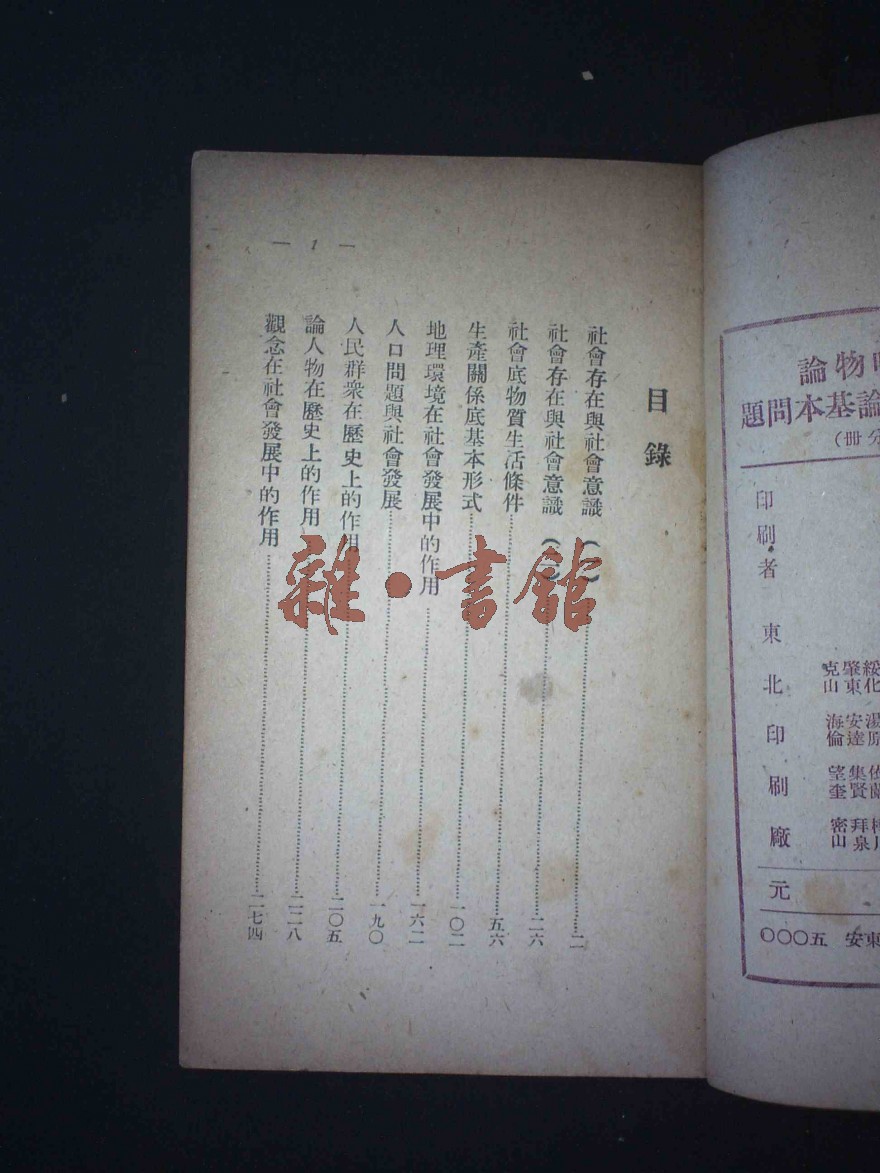 論物
題問本基論
印刷者 東北印刷廠
克山 肇東
海倫 安達
望奎 集賢
密山 拜泉
元
東安 五〇〇〇
— 1 —
目錄
社會存在與社會意識
社會存在與社會意識
社會底物質生活條件……五六
生產關係底基本形式……一〇二
地理環境在社會發展中的作用……一六二
人口問題與社會發展……一九〇
人民群衆在歷史上的作用……二〇五
論人物在歷史上的作用……二二八
觀念在社會發展中的作用……二七四
雜·書館